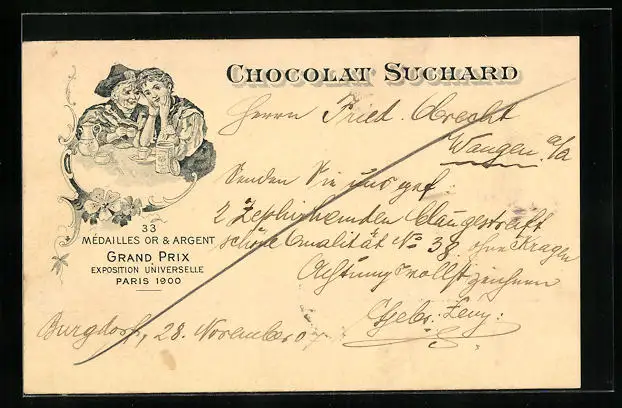 CHOCOLAT SUCHARD
Herrn Fried. Obrecht
Wangen a/a
Senden Sie uns gef.
2 Zephirhemden blaugestreift
schöne Qualität No 38 ohne Kragen
Achtungsvollst zeichnen
Gebr.
Burgdorf, 28. November 07
33
MÉDAILLES OR & ARGENT
GRAND PRIX
EXPOSITION UNIVERSELLE
PARIS 1900